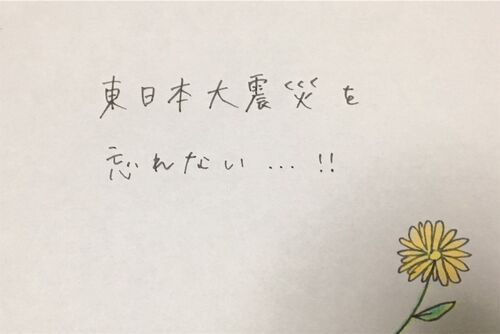 東日本大震災を
忘れない...!!